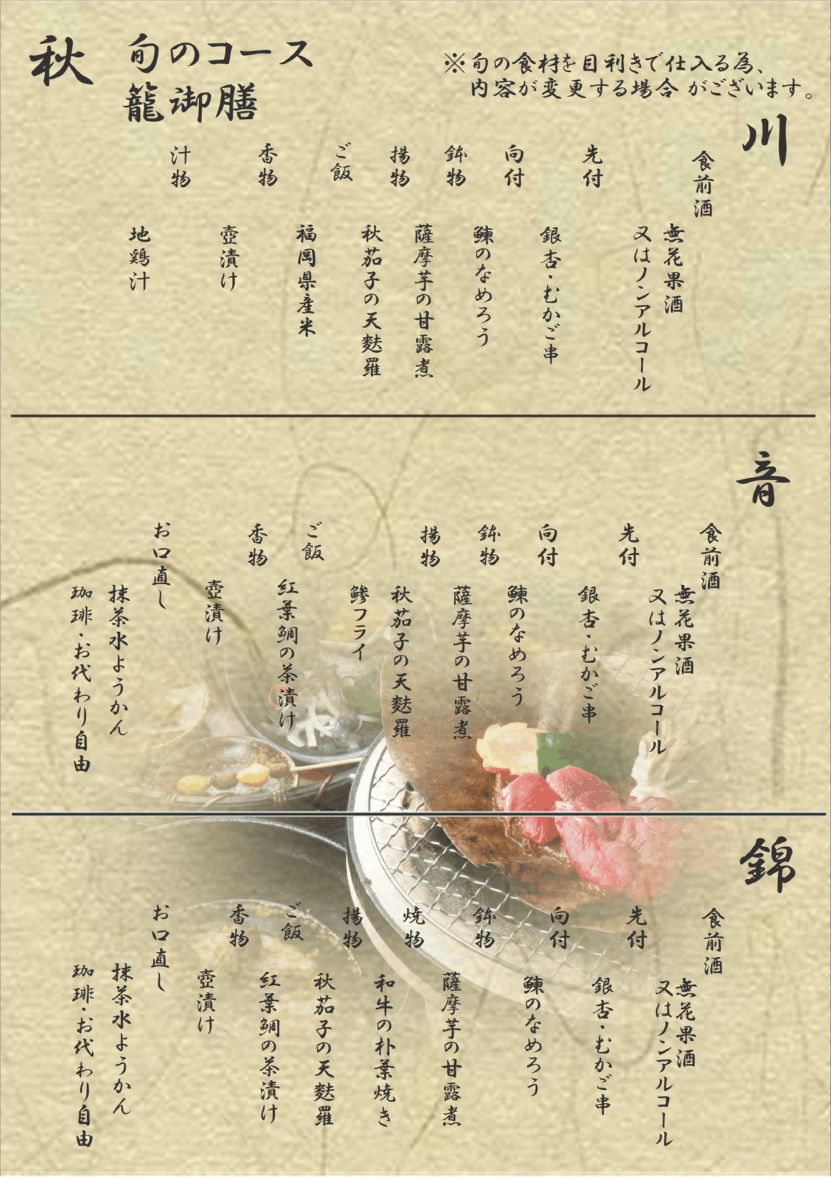 秋
旬のコース
籠御膳
※旬の食材を目利きで仕入る為、
内容が変更する場合 がございます。
川
食前酒
無花果酒
又はノンアルコール
先付
銀杏・むかご串
向付
鰊のなめろう
鉢物
薩摩芋の甘露煮
揚物
秋茄子の天麩羅
ご飯
福岡県産米
香物
壺漬け
汁物
地鶏汁
音
食前酒
無花果酒
又はノンアルコール
先付
銀杏・むかご串
向付
鰊のなめろう
鉢物
薩摩芋の甘露煮
揚物
秋茄子の天麩羅
鯵フライ
ご飯
紅葉鯛の茶漬け
香物
壺漬け
お口直し
抹茶水ようかん
珈琲・お代わり自由
錦
食前酒
無花果酒
又はノンアルコール
先付
銀杏・むかご串
向付
鰊のなめろう
鉢物
薩摩芋の甘露煮
焼物
和牛の朴葉焼き
揚物
秋茄子の天麩羅
ご飯
紅葉鯛の茶漬け
香物
壺漬け
お口直し
抹茶水ようかん
珈琲・お代わり自由